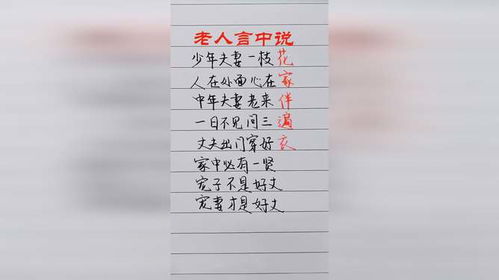 老人言中说
少年夫妻一枝花
人在外面心在家
中年夫妻老来伴
一日不见问三遍
丈夫出门穿好衣
家中必有一贤
宠子不是好丈
宠妻才是好丈